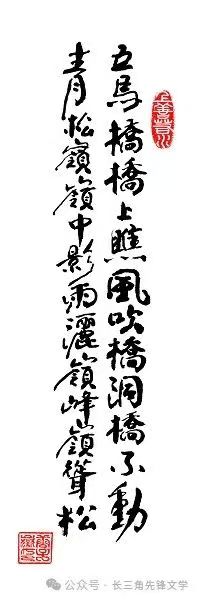 上善若水
五馬橋橋上瞧風吹橋洞橋不動
青松嶺嶺中影雨灑嶺峰嶺聳松
公众号 · 长三角先锋文学